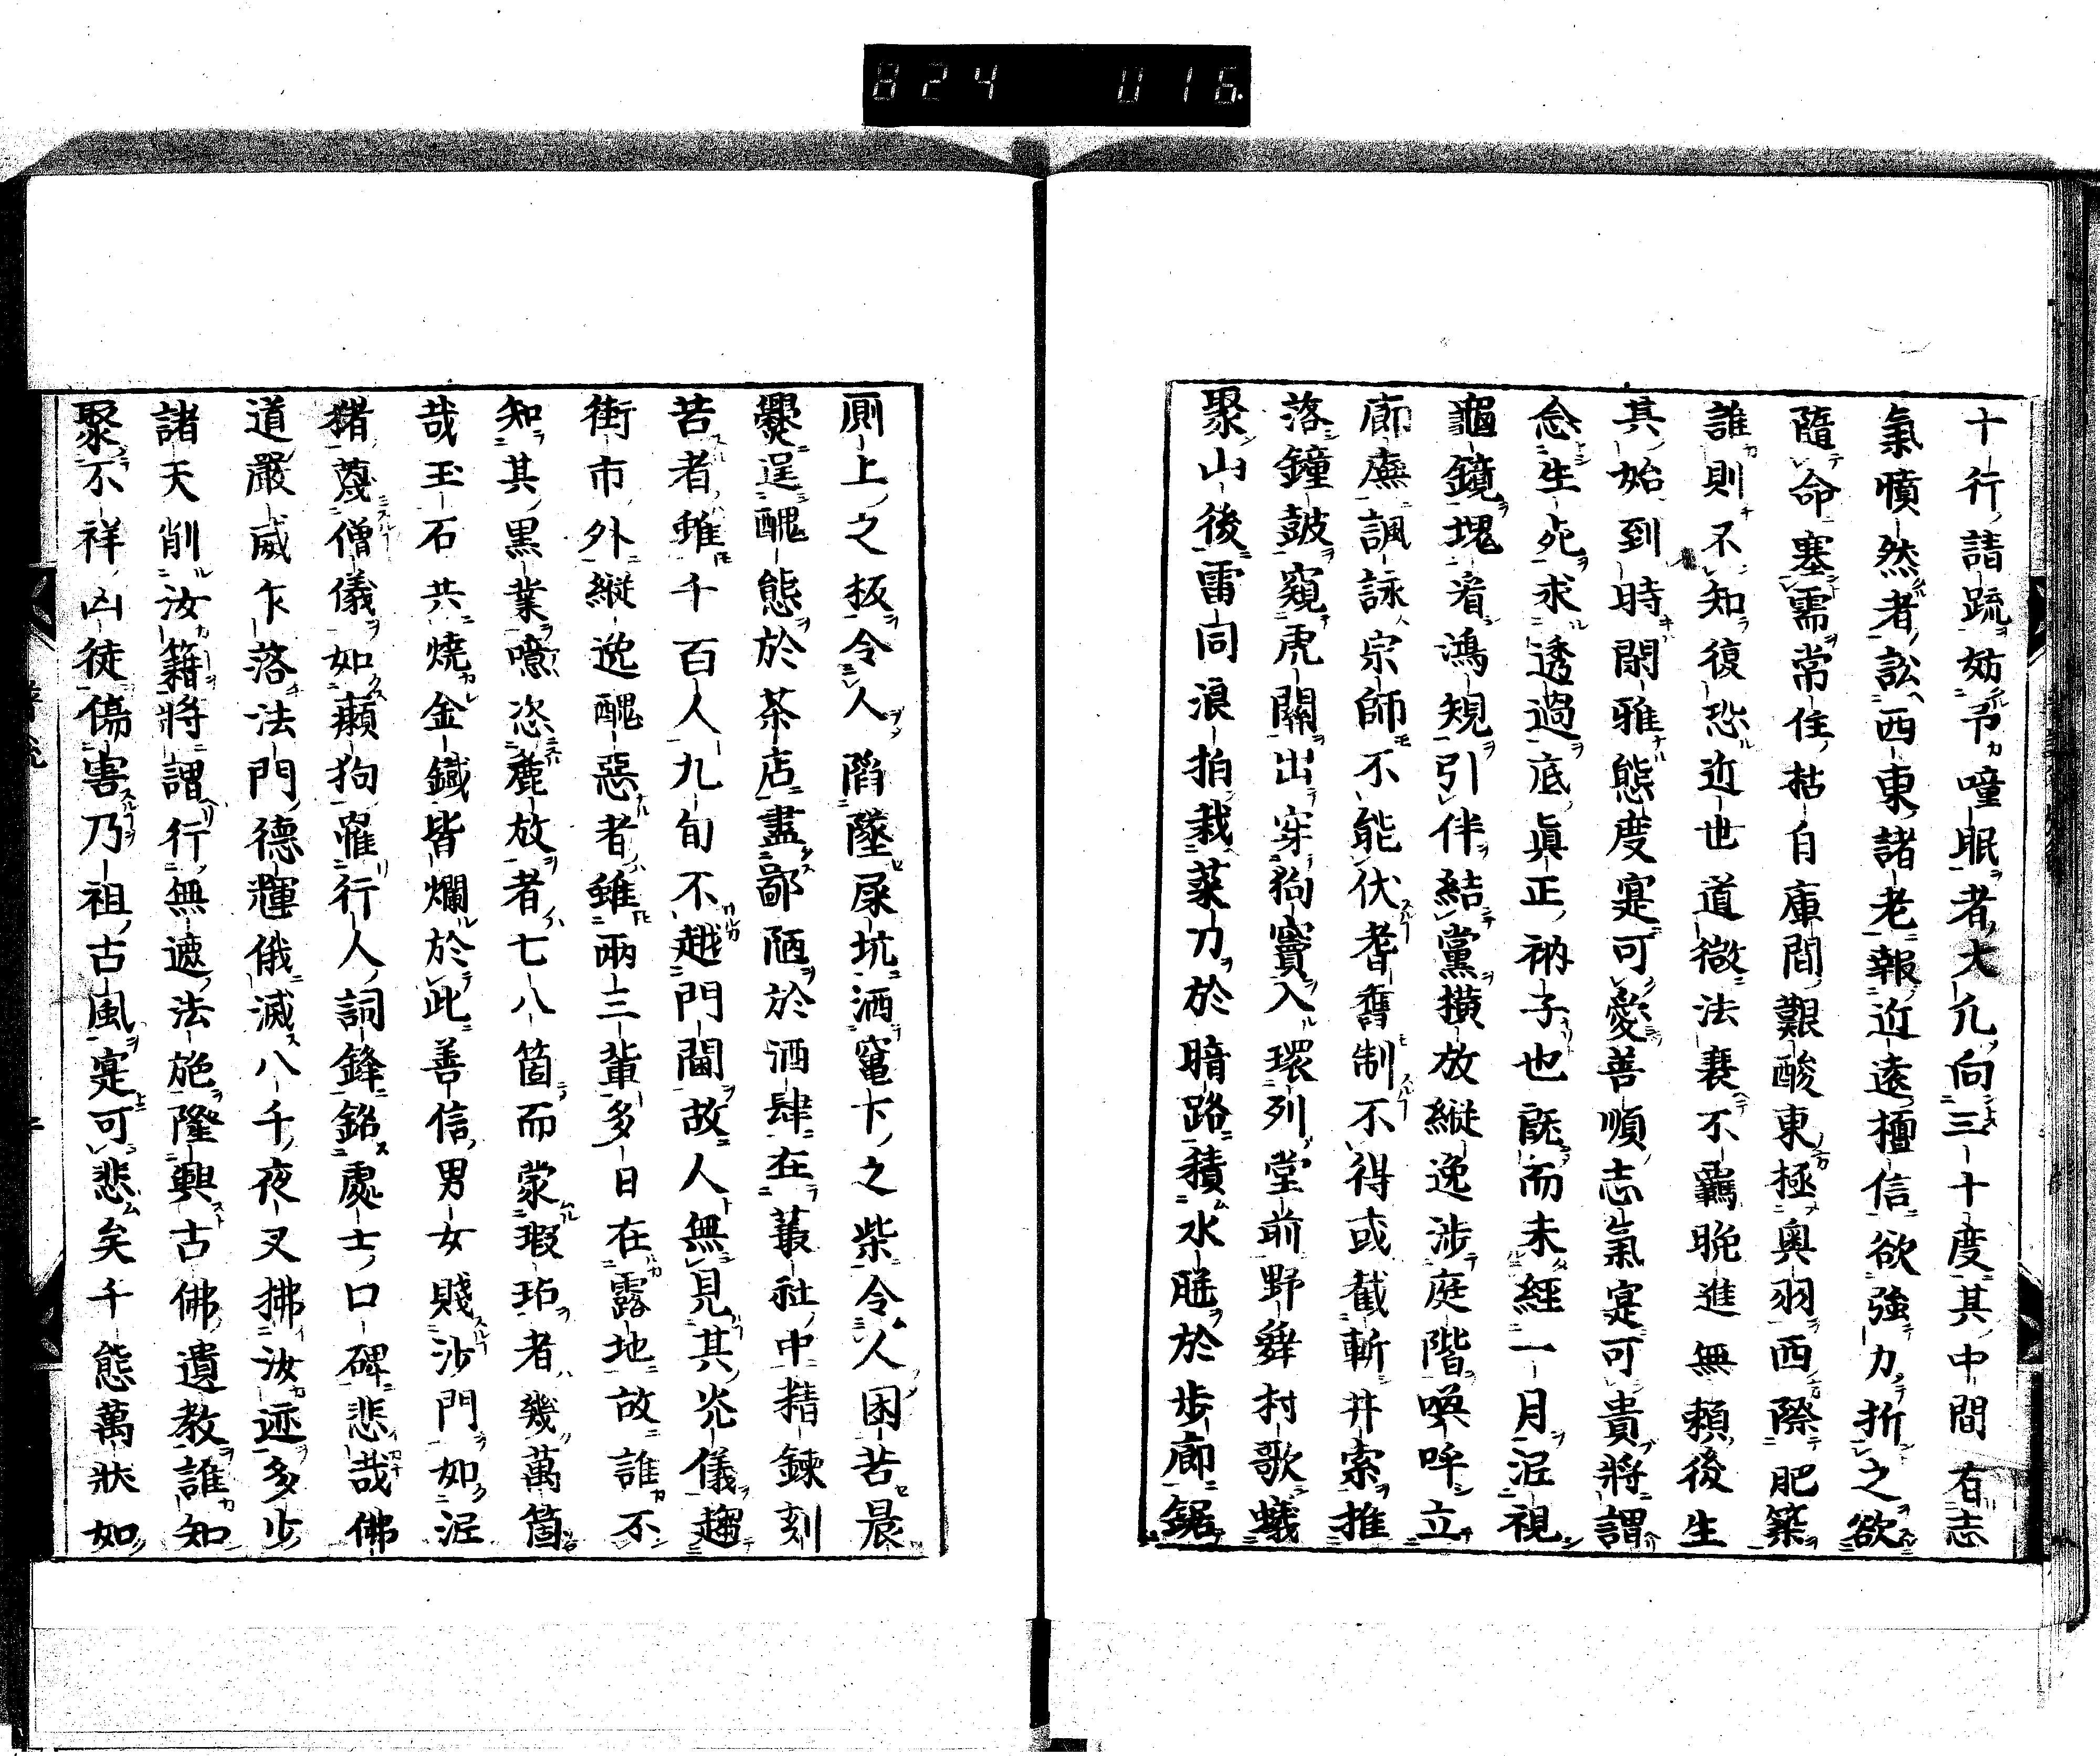 824 016
十行請疏妨卍噇眠者大凡向三十度其中間有志
氣憤然者訟西東諸老報近遠檀信欲強力折之欲
隨命塞需常住枯自庫間艱酸東極奧羽西際肥築
誰則不知復恐近世道微法衰不羈晩進無賴後生
其始到時閑雅態度寔可愛善順志氣寔可貴將謂
念生死求透過底真正衲子也既而未經一月泥視
龜鏡塊看鴻規引伴結黨橫放縱逸涉庭階喚哞立
廊廡諷詠宗師不能伏耆舊制不得或截斬井索推
落鐘鼓窺虎關出穿狗竇入環列堂前野舞村歌蟻
聚山後雷同浪拍栽菜刀於暗路積水胜於步廊鋸
厠上之扳令人陷墜屎坑洒竃下之柴令人困苦晨
爨逞醜態於茶店盡鄙陋於酒肆在叢社中精鍊刻
苦者雖千百人九旬不越門閫故人無見其光儀趨
街市外縱逸醜惡者雖兩三輩多日在露地故誰不
知其黒業噫恣麁放者七八箇而蒙瑕玷者幾萬箇
哉玉石共燒金鐵皆爛於此善信男女賤沙門如泥
猪蔑僧儀如癩狗罹行人詞鋒銘處士口碑悲哉佛
道嚴威乍落法門德輝俄滅八千夜叉拂汝迹多少
諸天削汝籍將謂行無遮法施隆興古佛遺教誰知
聚不祥凶徒傷害乃祖古風寔可悲矣千態萬狀如